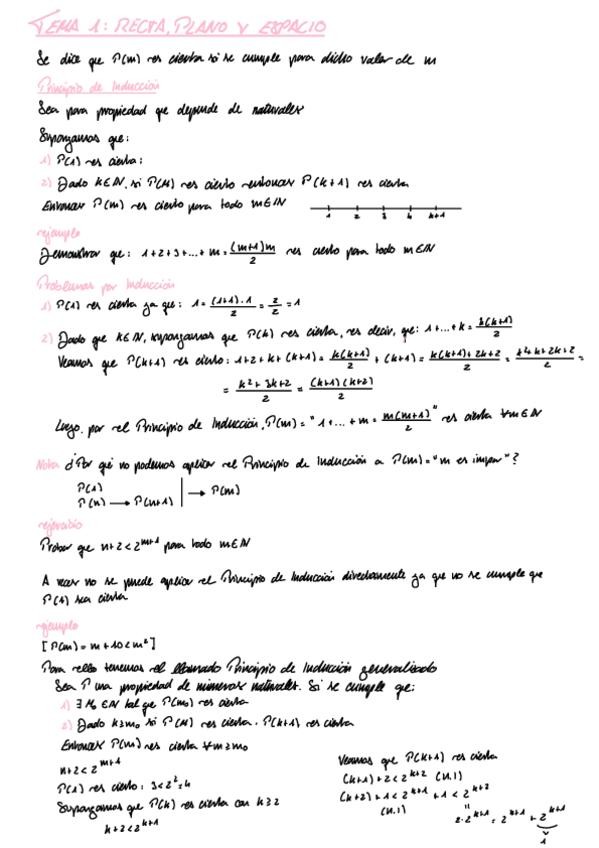 TEMA 1: RECTA, PLANO Y ESPACIO
Se dice que P(m) es cierta si se cumple para dicho valor de m
Principio de Inducción
Sea para propiedad que depende de naturales
Supongamos que:
1) P(1) es cierta:
2) Dado K∈IN, si P(K) es cierto entonces P(K+1) es cierta
Entonces P(m) es cierto para todo m∈IN
1 2 3 4 k+1
ejemplo
Demostrar que: 1+2+3+...+m = (m+1)m/2 es cierto para todo m∈IN
Problemas por Inducción
1) P(1) es cierta ya que: 1 = (1+1)·1/2 = 2/2 = 1
2) Dado que K∈IN, supongamos que P(k) es cierta, es decir, que: 1+...+k = k(k+1)/2
Veamos que P(k+1) es cierto: 1+2+k+(k+1) = k(k+1)/2 + (k+1) = k(k+1)+2k+2/2 =
= k²+3k+2/2 = (k+1)(k+2)/2
Luego, por el Principio de Inducción, P(m) = "1+...+m = m(m+1)/2" es cierta ∀m∈IN
Nota ¿Por qué no podemos aplicar el Principio de Inducción a P(m)="m es impar"?
P(1)
P(n) → P(n+1) | → P(m)
ejercicio
Probar que n+2<2^(m+1) para todo m∈IN
A veces no se puede aplicar el Principio de Inducción directamente ya que no se cumple que
P(1) sea cierta
ejemplo
[P(m)=m+10<m²]
Para ello tenemos el llamado Principio de Inducción generalizado
Sea P una propiedad de números naturales. Si se cumple que:
1) ∃ m₀ ∈IN tal que P(m₀) es cierta
2) Dado k≥m₀ si P(k) es cierta. P(k+1) es cierta
Entonces P(m) es cierta ∀m≥m₀
n+2<2^(m+1)
P(1) es cierto: 3<2²=4
Supongamos que P(k) es cierta con k≥2
k+2<2^(k+1)
Veamos que P(k+1) es cierta
(k+1)+2<2^(k+2) (H.I)
(k+2)+1<2^(k+1)+1<2^(k+2)
(H.I) "
2·2^(k+1) = 2^(k+1)+2^(k+1)
1